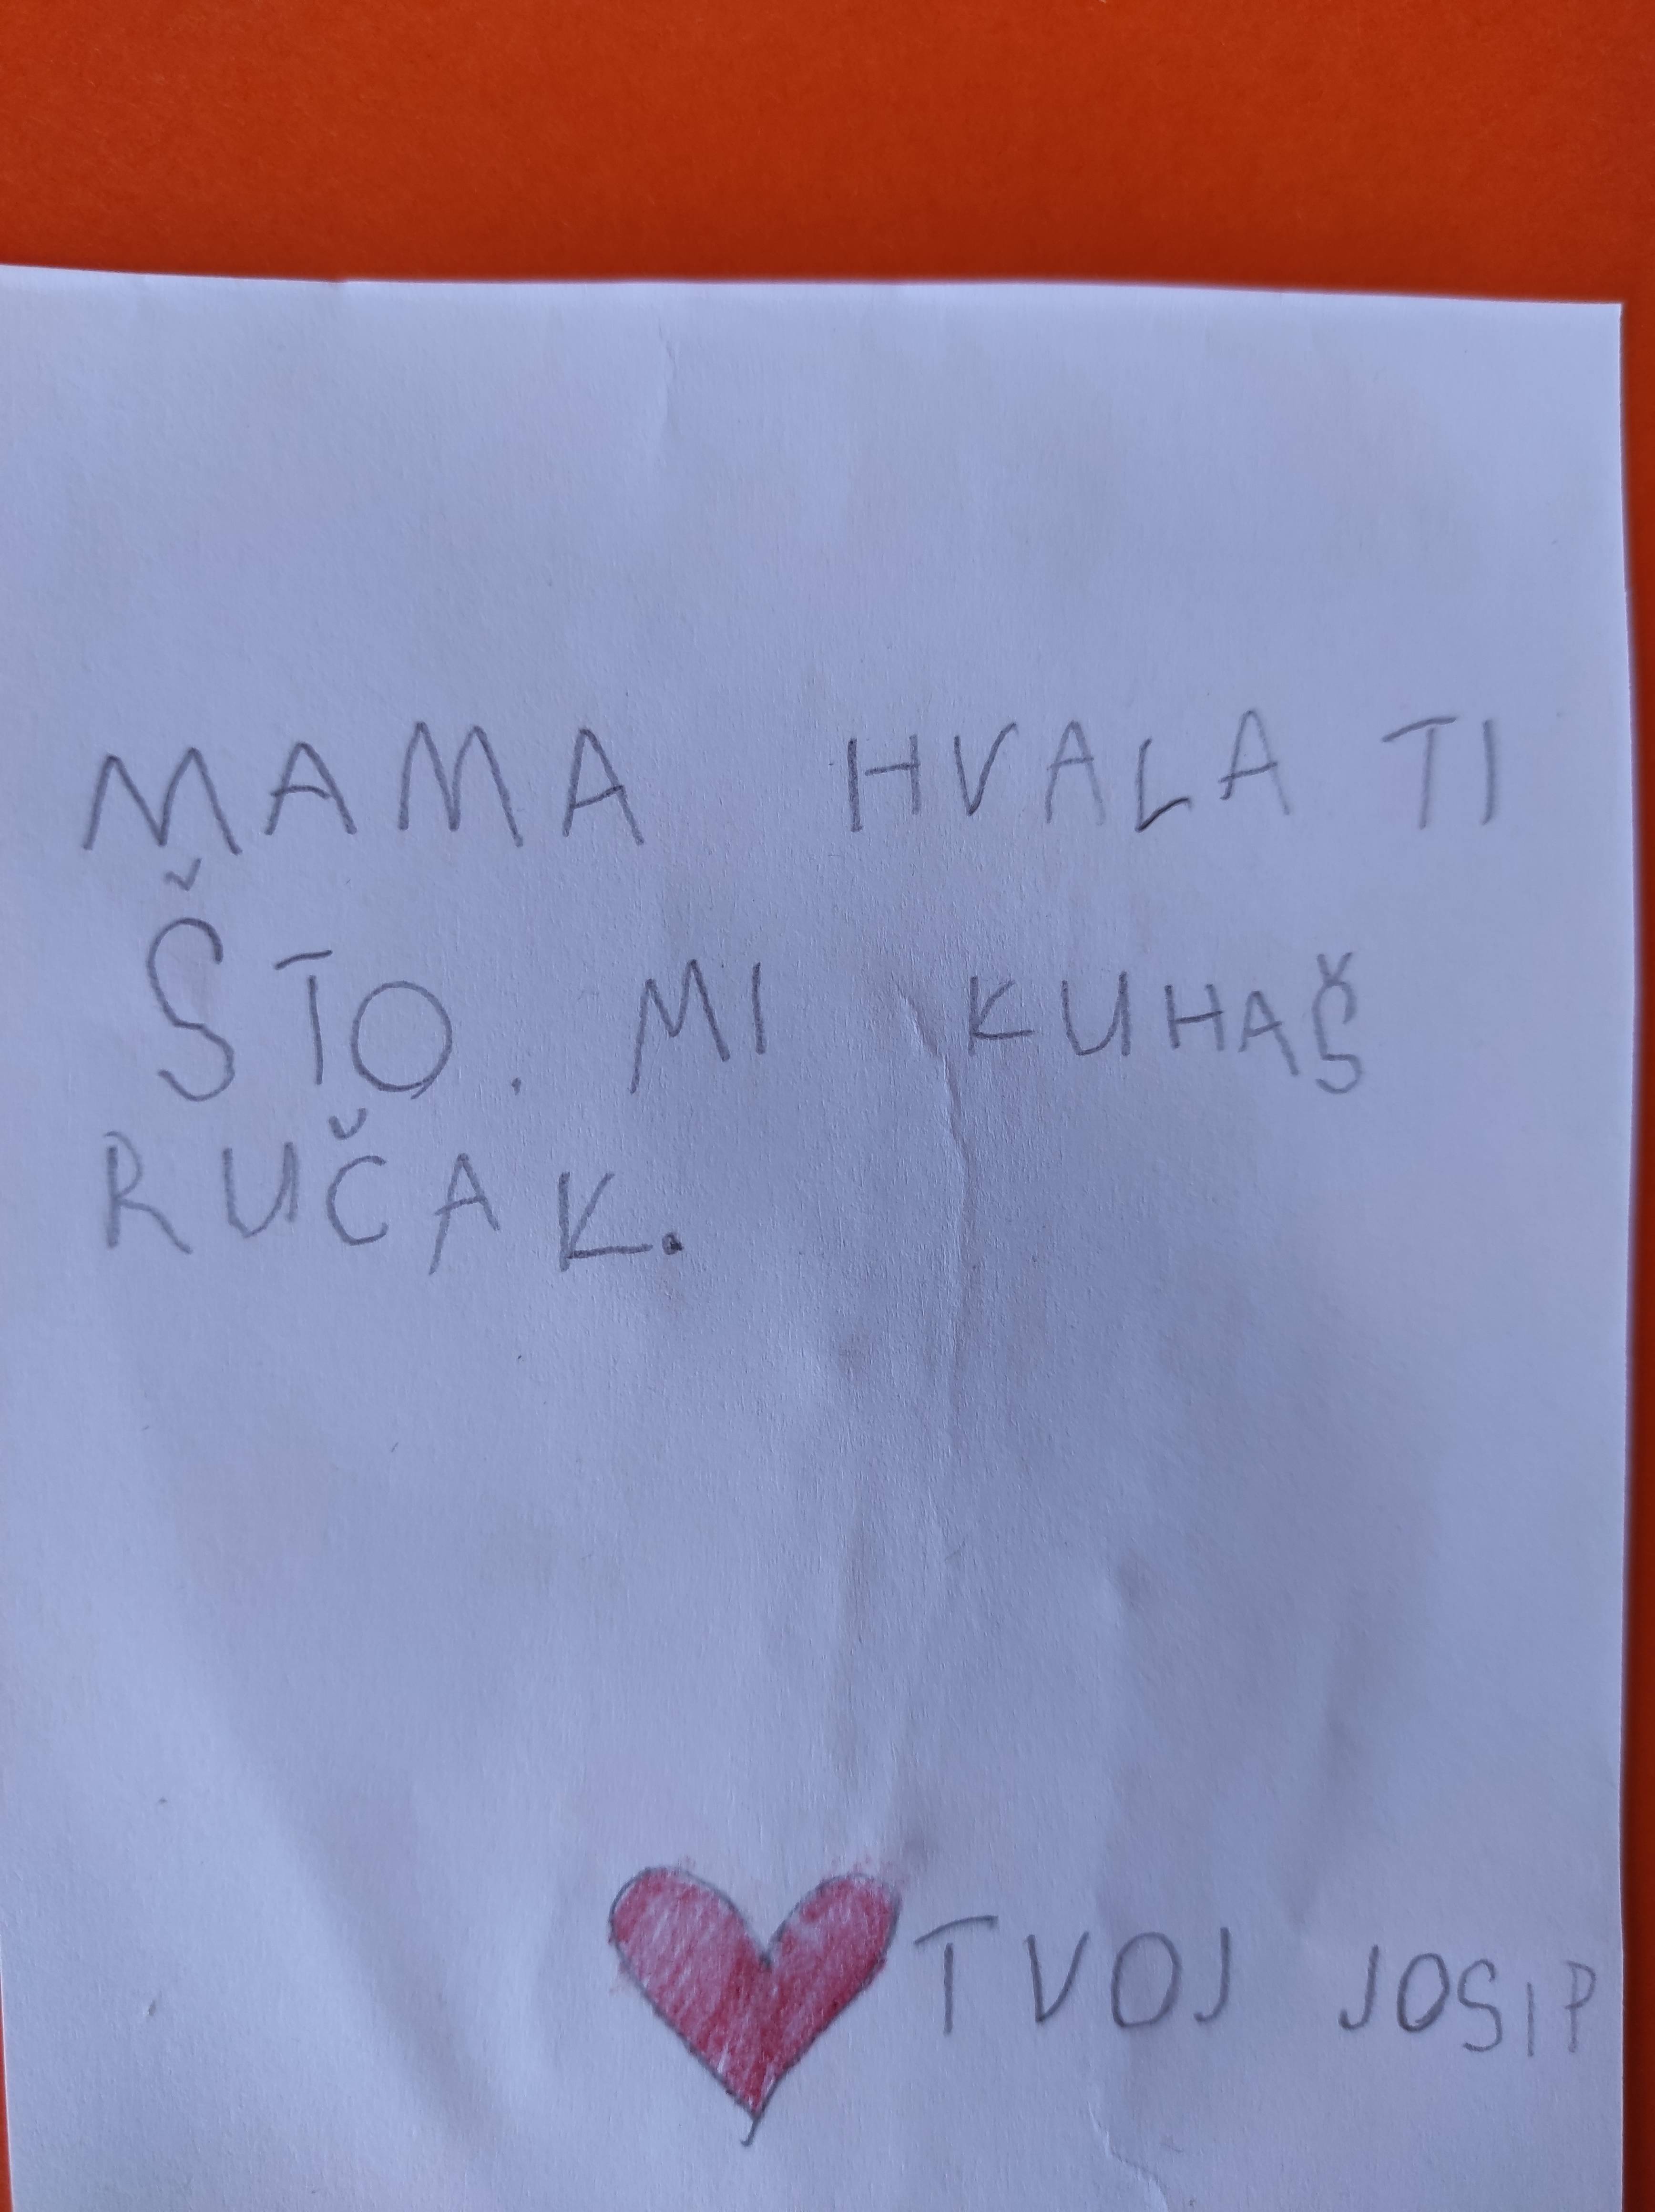 MAMA HVALA TI
ŠTO. MI KUHAŠ
RUČAK.
TVOJ JOSIP